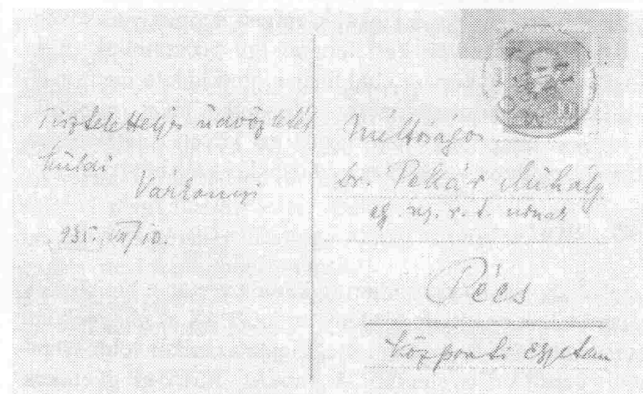 Tiszteletteljes üdvözletét
küldi
Várkonyi
935. VII/10.
Méltóságos
Dr. Pekár Mihály
eg. ny. r. t. úrnak
Pécs
központi egyetem